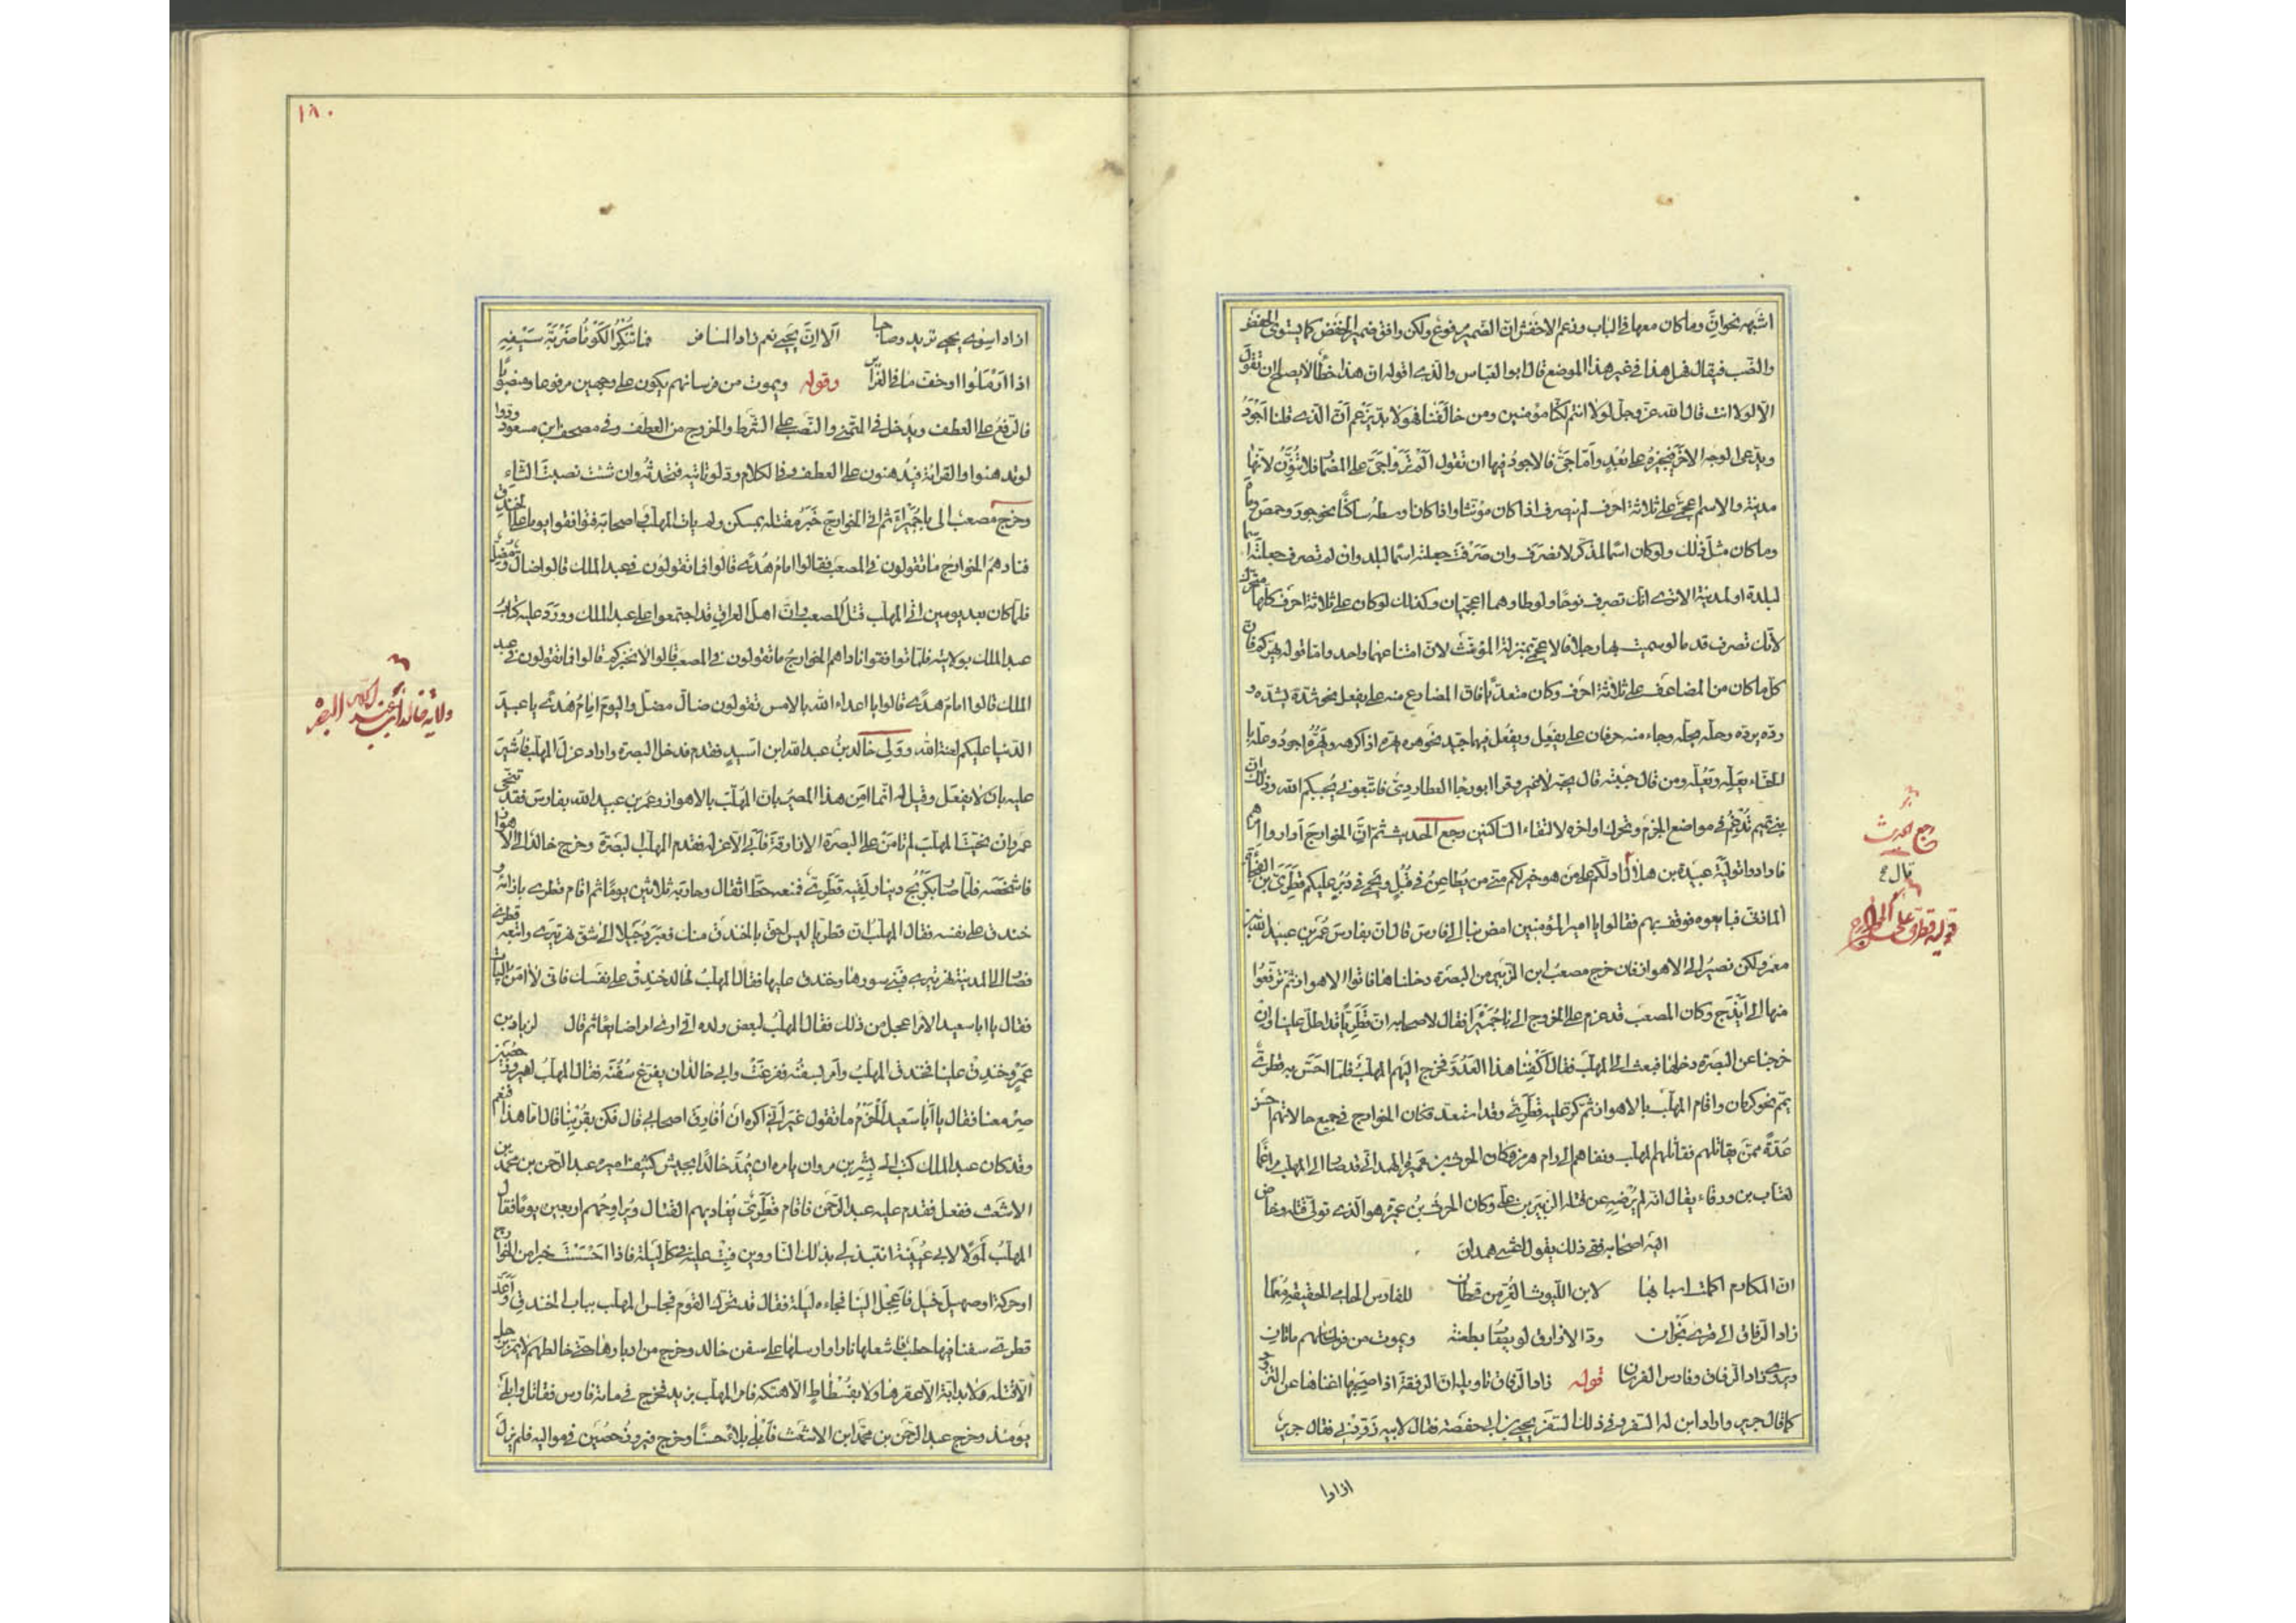 اشبهه نحو ان وما كان معها في الباب وزعم الاخفش ان الضمير مرفوع ولكن وافق ضمير الخفض كما يستوى الخفض
والنصب فيقال فهل هذا في غير هذا الموضع قال ابو العباس والذى اقوله ان هذا خطأ لا يصلح ان تقول
الا لولا انت قال الله عز وجل لولا انتم لكنا مؤمنين ومن خالفنا فهو لا بد يزعم ان الذى قلنا اجود
ويدعى الوجه الآخر فيجيزه على بعد واما جى فالاجود فيها ان تقول
مدينة والاسم اعجمى على ثلاثة احرف لم ينصرف اذا كان مؤنثا واذا كان اوسطه ساكنا نحو جور وحمص وما
وما كان مثل ذلك ولو كان اسما لمذكر لانصرف وان صرفت جعلته اسما لبلد وان لم تصرف جعلته اسما
لبلدة او لمدينة الا ترى انك تصرف نوحا ولوطا وهما اعجميان وكذلك لو كان على ثلاثة احرف كلها متحرك
لانك تصرف قدما لو سميت بها رجلا فالاعجمى بمنزلة المؤنث لان امتناعهما واحد واما قوله يهركم فان
كل ما كان من المضاعف على ثلاثة احرف وكان متعديا فان المضارع منه على يفعل نحو شده يشده و
رده يرده وحله يحله وجاء منه حرفان على يفعل ويفعل فيها جيد نحو هره يهره اذا كرهه ويهره اجود وعله با
لحناء يعله ويعله ومن قال حبته قال يحبه لا غير وقرا ابو رجاء العطاردى فاتبعونى يحبكم الله وذلك ان
بنى تميم تدغم في مواضع الجزم وتحرك اواخره لالتقاء الساكنين رجع الحديث ثم ان الخوارج اداروا امرهم
فارادوا تولية عبيدة بن هلال فقال ادلكم على من هو خير لكم منى من يطاعن في قبل ويحمى في دبر عليكم قطرى بن الفجاءة
المازنى فبايعوه فوقف بهم فقالوا يا امير المؤمنين امض بنا الى فارس قال ان بفارس عمر بن عبيد الله بن
معمر ولكن نصير الى الاهواز فان خرج مصعب ابن الزبير من البصرة دخلناها فاتوا الاهواز ثم ترفعوا
منها الى ايذج وكان المصعب قد عزم على الخروج الى باجميرا فقال لاصحابه ان قطريا قد اطل علينا وان
خرجنا عن البصرة دخلها فبعث الى المهلب فقال اكفنا هذا العدو فخرج اليهم المهلب فلما احس به قطرى
يمم نحو كرمان واقام المهلب بالاهواز ثم كر عليه قطرى وقد استعد فكان الخوارج في جميع حالاتهم احسن
عدة ممن يقاتلهم فقاتلهم المهلب ونفاهم الى رام هرمز وكان الحرث بن عميرة الهمدانى قد صار الى المهلب مراغما
لعتاب بن ورقاء يقال انه لم يرضه عن قتله الزبير بن على وكان الحرث بن عميرة هو الذى تولى قتله وخاض
اليه اصحابه ففى ذلك يقول اعشى همدان
ان المكارم اكملت اسبابها لابن الليوث الغر من قحطان للفارس الحامى الحقيقة معلما
زاد الرفاق الى قرى نجران ود الازارق لو يصاب بطعنة ويموت من فرسانهم مائتان
ويروى زاد الرفاق وفارس الفرسان قوله زاد الرفاق تاويله ان الرفقة اذا صحبها اغناها عن التزود
كما قال جرير واراد ابن له السفر وفى ذلك السفر يحيى بن ابى حفصة فقال لابيه زودنى فقال جرير
اذا دا
رجع الحديث
قال
تولية قطرى على الخوارج
١٨٠
اذا دا سنوى يحيى تريد وصاحبا الا ان يحيى نعم زاد المسافر فما تنكر الكوماء ضربة سيفه
اذا ارملوا او خف ما في الغرائر وقوله ويموت من فرسانهم يكون على وجهين مرفوعا ومنصوبا
فالرفع على العطف ويدخل في التمنى والنصب على الشرط والخروج من العطف وفى مصحف ابن مسعود ودوا
لو تدهن فيدهنوا والقراءة فيدهنون على العطف وفى الكلام ود لو تاتيه فتحدثه وان شئت نصبت الثاء
وخرج مصعب الى باجميرا ثم اتى الخوارج خبر مقتله بمسكن ولم يات المهلب واصحابه فتواقفوا يوما على الخندق
فناداهم الخوارج ما تقولون في المصعب فقالوا امام هدى قالوا فما تقولون في عبد الملك قالوا ضال مضل
فلما كان بعد يومين اتى المهلب قتل المصعب وان اهل العراق قد اجتمعوا على عبد الملك وورد عليه كتاب
عبد الملك بولايته فلما تواقفوا ناداهم الخوارج ما تقولون في المصعب قالوا لا نخبركم قالوا فما تقولون في عبد
الملك قالوا امام هدى قالوا يا اعداء الله بالامس تقولون ضال مضل واليوم امام هدى يا عبيد
الدنيا عليكم لعنة الله وولى خالد بن عبد الله ابن اسيد فقدم فدخل البصرة واراد عزل المهلب فاشير
عليه بان لا يفعل وقيل له انما امن هذا المصر بان المهلب بالاهواز وعمر بن عبيد الله بفارس فقد تنحى
عمر وان نحيت المهلب لم تامن على البصرة الازارقة فابى الا عزله فقدم المهلب البصرة وخرج خالد الى الاهواز
فاشخصه فلما صار بكربج دينار لقيه قطرى فمنعه حط اثقاله وحاربه ثلاثين يوما ثم اقام قطرى بازائه و
خندق على نفسه فقال المهلب ان قطريا ليس باحق بالخندق منك فعبر دجيلا الى شق نهر تيرى واتبعه قطرى
فصار الى مدينة نهر تيرى فبنى سورها وخندق عليها فقال المهلب لخالد خندق على نفسك فانى لا آمن البيات
فقال يا ابا سعيد الامر اعجل من ذلك فقال المهلب لبعض ولده انى ارى امرا ضايعا ثم قال لزياد بن
عمرو خندق علينا فخندق المهلب وامر بسفنه ففرغت وابى خالد ان يفرغ سفنه فقال المهلب لفيروز حصين
صر معنا فقال يا ابا سعيد الحزم ما تقول غير انى اكره ان افارق اصحابى قال فكن بقربنا قال اما هذا فنعم
وقد كان عبد الملك كتب الى بشر بن مروان يامره ان يمد خالدا بجيش كثيف اميره عبد الرحمن بن محمد بن
الاشعث ففعل فقدم عليه عبد الرحمن فاقام قطرى يغاديهم القتال ويراوحهم اربعين يوما فقال
المهلب لمولى لابى عيينة انتبذ الى ذلك الناووس فبت عليه في كل ليلة فاذا احسست خبرا من الخوارج
او حركة او صهيل خيل فاعجل الينا فجاءه ليلة فقال قد تحرك القوم فجلس المهلب بباب الخندق واعد
قطرى سفنا فيها حطب فاشعلها نارا وارسلها على سفن خالد وخرج من ادبارها حتى خالطهم لا يمر برجل
الا قتله ولا بدابة الا عقرها ولا بفسطاط الا هتكه فامر المهلب يزيد فخرج في مائة فارس فقاتل وابلى
يومئذ وخرج عبد الرحمن بن محمد ابن الاشعث فابلى بلاء حسنا وخرج فيروز حصين في مواليه فلم يزل
ولاية خالد بن عبد الله البصره